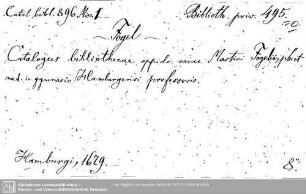 Catal. bibl. 896. Nro. 1
Biblioth. priv. 495.
Fogel
Catalogus bibliothecae oppido rarae Martini Fogelii, phil. et
med. in gymnasio Hamburgensi professoris.
Hamburgi, 1679.
8°
Sächsische Landesbibliothek -
Staats- und Universitätsbibliothek Dresden